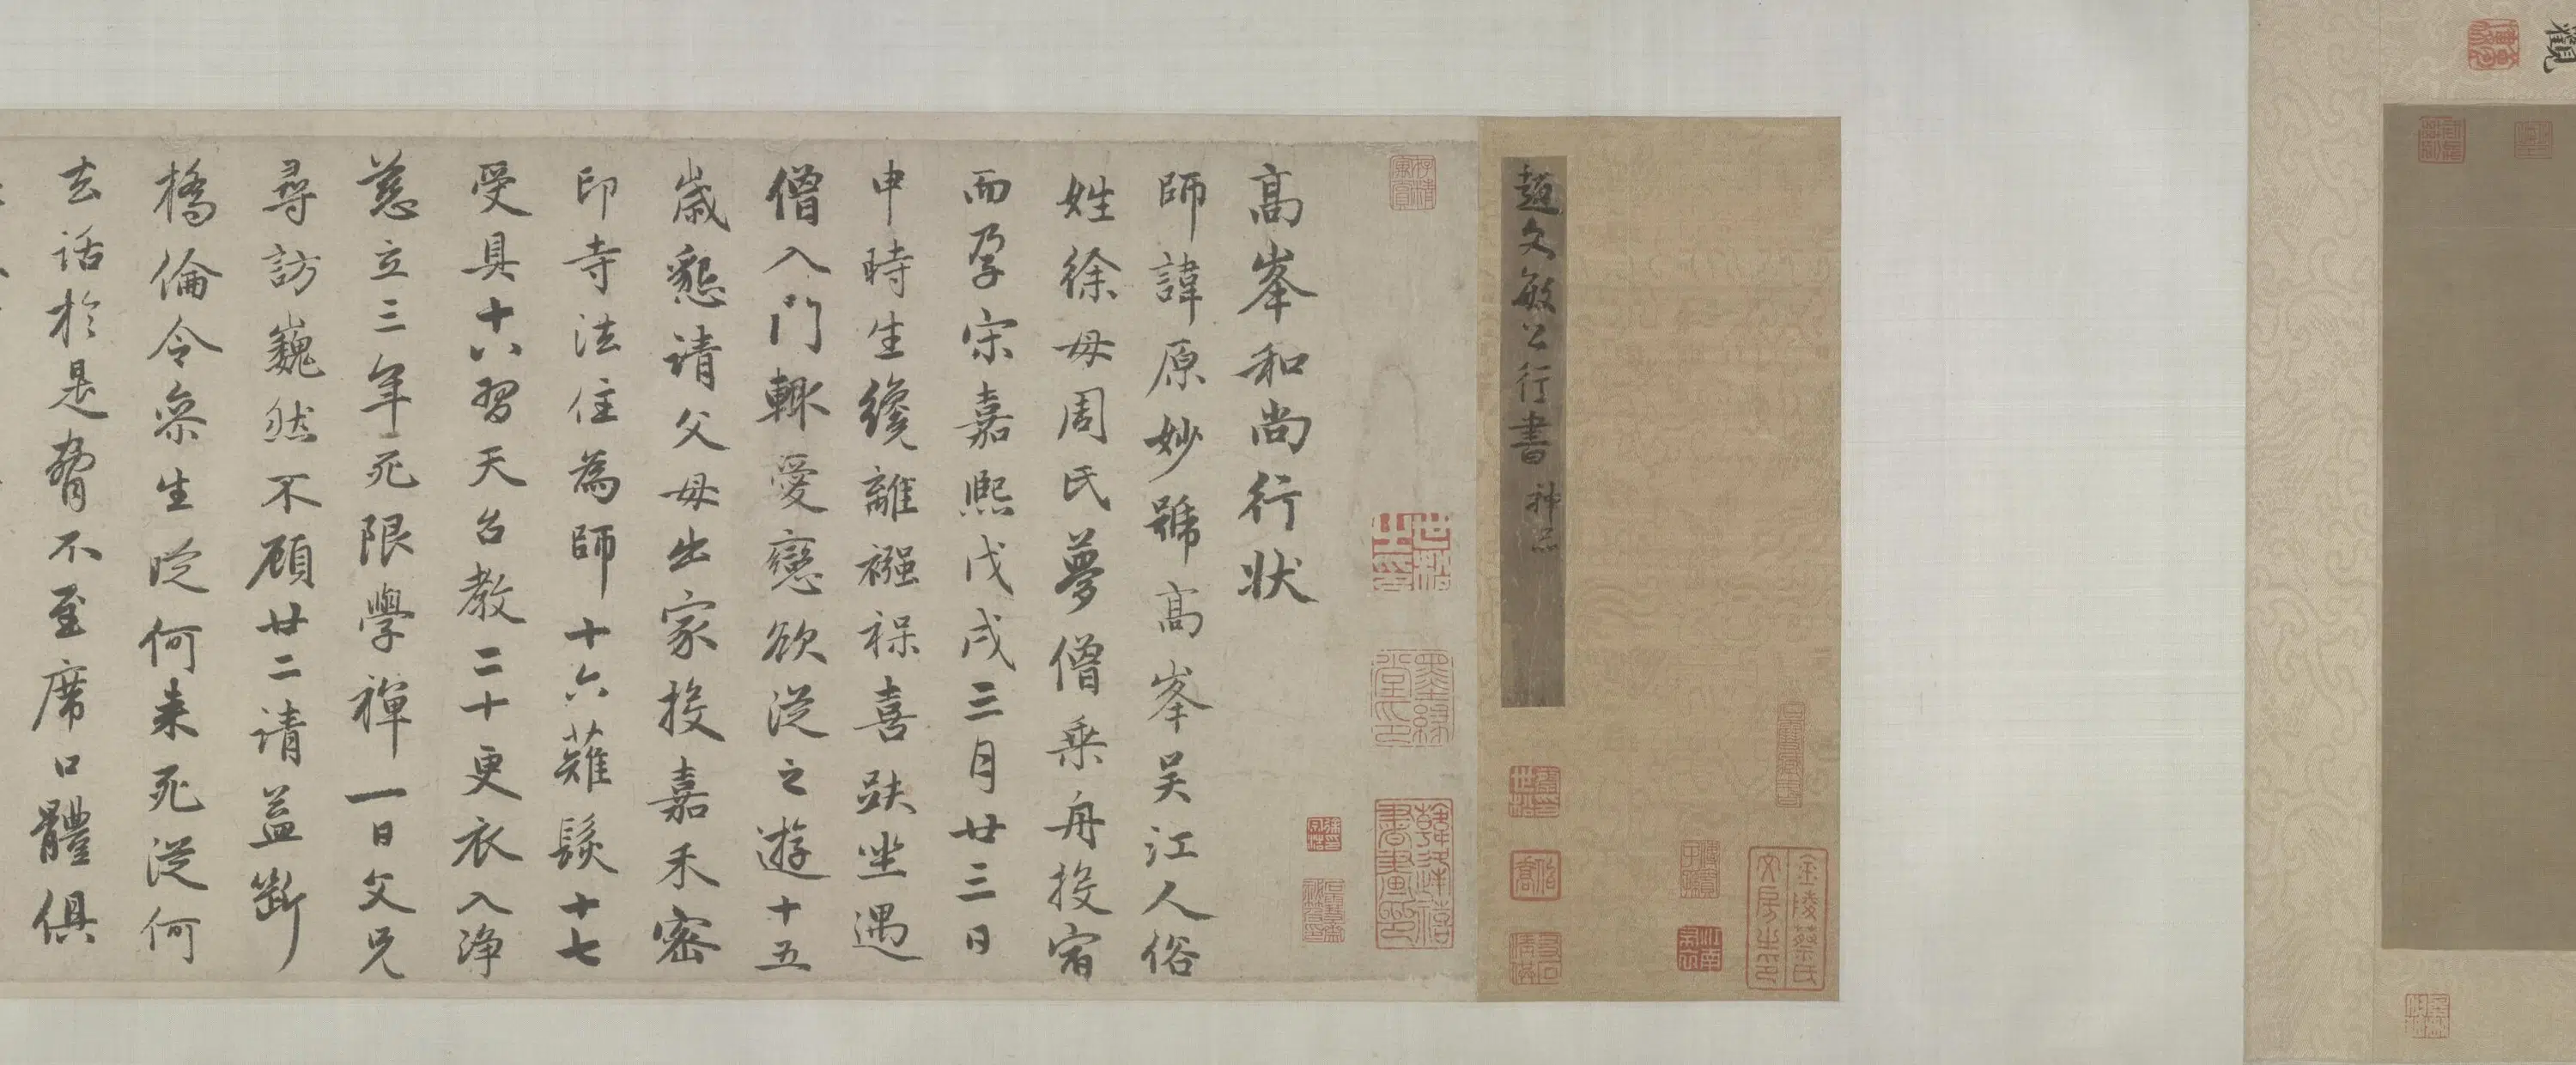 觀
趙文敏公行書神品
金陵蔡氏
文房之印
高峯和尚行状
師諱原妙號高峯吴江人俗
姓徐母周氏夢僧乘舟投宿
而孕宋嘉熙戊戌三月廿三日
申時生纔離襁褓喜趺坐遇
僧入門輙愛戀欲従之遊十五
歲懇请父母出家投嘉禾密
印寺法住為師十六薙髮十七
受具十八習天台教二十更衣入浄
慈立三年死限學禅一日父兄
尋訪巍然不顧廿二请益斷
橋倫令叅生従何来死従何
去話於是脅不至席口體俱